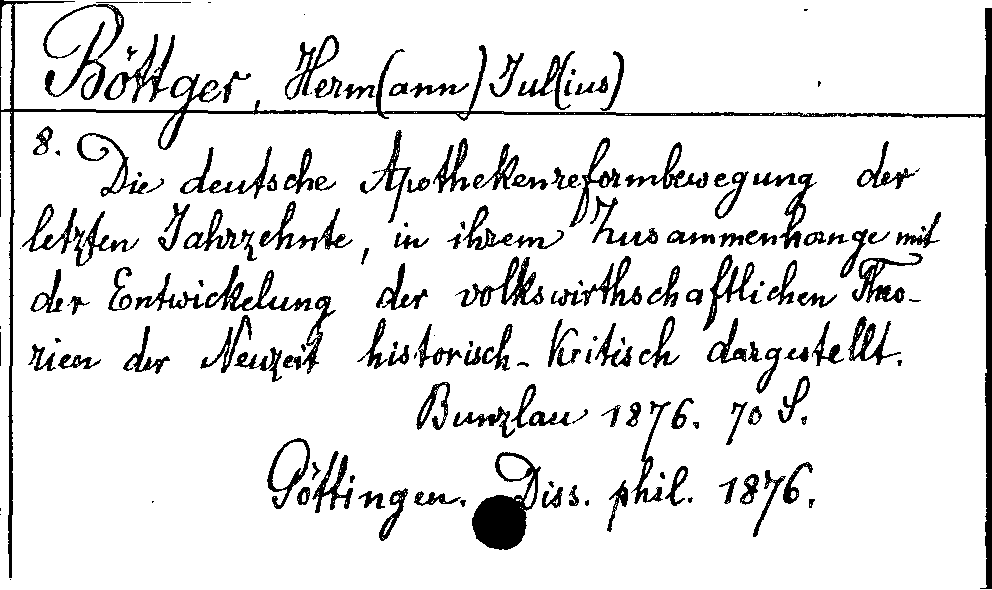 Böttger, Herm(ann) Jul(ius)
8. Die deutsche Apothekenreformbewegung der
letzten Jahrzehnte, in ihrem Zusammenhange mit
der Entwickelung der volkswirthschaftlichen Theo-
rien der Neuzeit historisch-kritisch dargestellt.
Bunzlau 1876. 70 S.
Göttingen. Diss. phil. 1876.